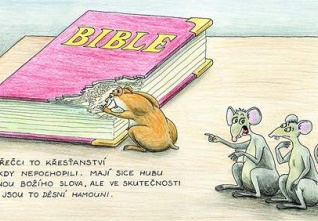 BIBLE
ŘEČCI TO KŘESŤANSTVÍ
KDY NEPOCHOPILI. MAJÍ SICE HUBU
NOU BOŽÍHO SLOVA, ALE VE SKUTEČNOSTI
JSOU TO DĚSNÍ HAMOUNI.